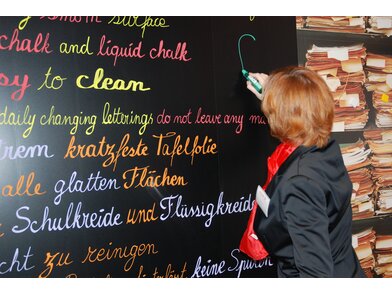 smooth surface
chalk and liquid chalk
easy to clean
daily changing letterings do not leave any
extrem kratzfeste Tafelfolie
alle glatten Flächen
Schulkreide und Flüssigkreide
leicht zu reinigen
keine Spuren